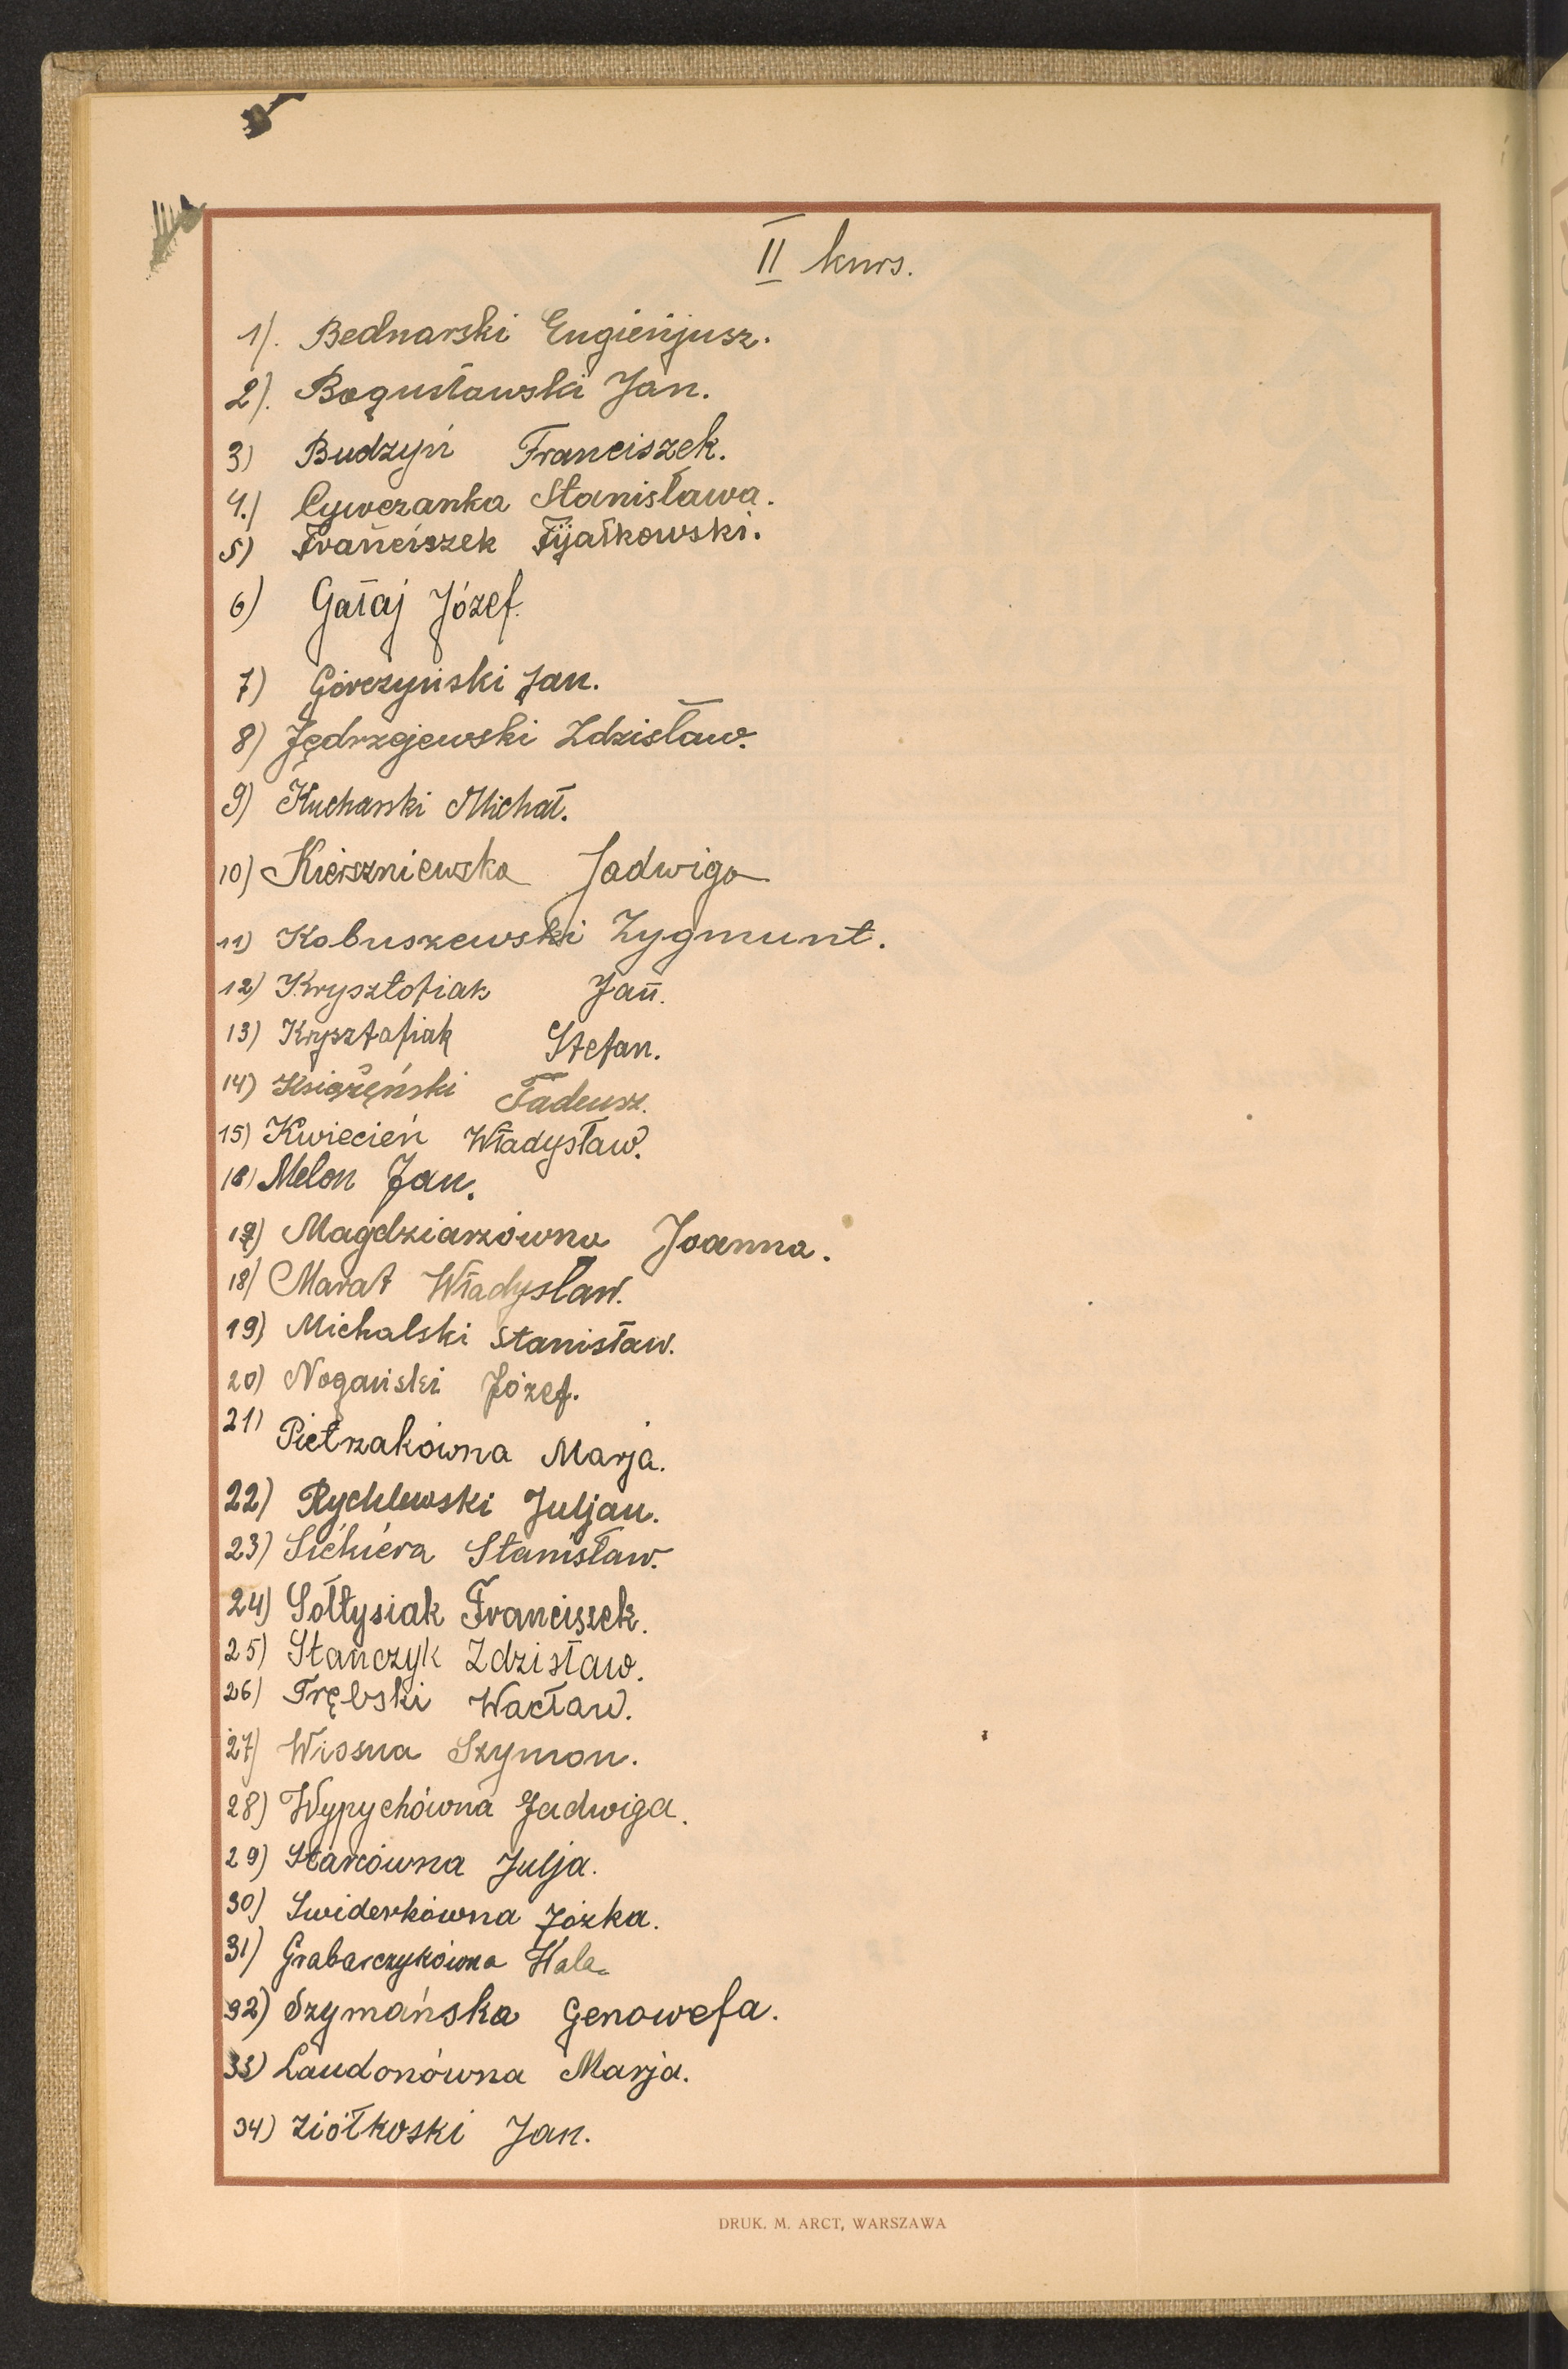 II kurs.
1). Bednarski Eugienjusz.
2). Bogusławski Jan.
3) Budzyń Franciszek.
4.) Cywczanka Stanisława.
5) Franciszek Fijałkowski.
6) Gałaj Józef.
7) Górczyński Jan.
8) Jędrzejewski Zdzisław.
9) Kucharski Michał.
10) Kierszniewska Jadwiga
11) Kobuszewski Zygmunt.
12) Krysztofiak Jan.
13) Krysztofiak Stefan.
14) Księżeński Tadeusz.
15) Kwiecień Władysław.
16) Melon Jan.
17) Magdziarzówna Joanna.
18) Marat Władysław.
19) Michalski Stanisław.
20) Nogański Józef.
21) Pietrzakówna Marja.
22) Rychlewski Juljan.
23) Siekiera Stanisław.
24) Sołtysiak Franciszek.
25) Stańczyk Zdzisław.
26) Trębski Wacław.
27) Wiosna Szymon.
28) Wypychówna Jadwiga.
29) Starcówna Julja.
30) Swiderkówna Józka.
31) Grabarczykówna Hala.
32) Szymańska Genowefa.
33) Laudonówna Marja.
34) Ziółkoski Jan.
DRUK. M. ARCT, WARSZAWA